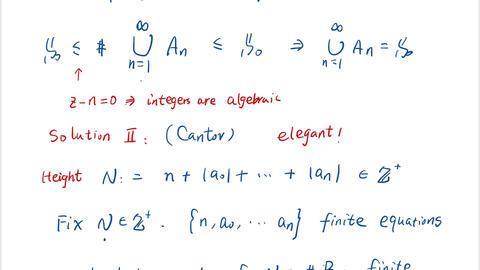 ℵ₀ ≤ # ⋃_{n=1}^{∞} Aₙ ≤ ℵ₀ ⇒ ⋃_{n=1}^{∞} Aₙ = ℵ₀
↑
z-n=0 ⇒ integers are algebraic
Solution II: (Cantor) elegant!
Height N := n + |a₀| + ⋯ + |aₙ| ∈ ℤ⁺
Fix N ∈ ℤ⁺. {n, a₀, ⋯ aₙ} finite equations
finite